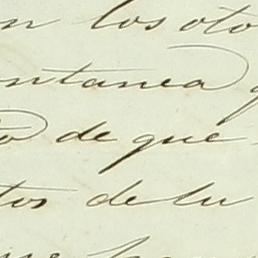 n los oto
ntanea
o de que
tos de lu